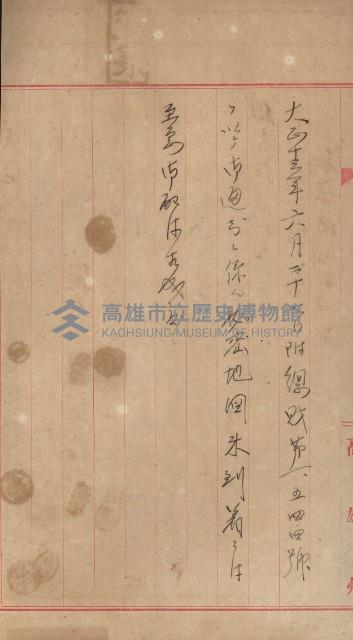 大正十三年六月二十日附總財第一、五四四號
ヲ以テ御通知ニ係ル秘密地図未到着ニ付
至急御配付相成度
高雄州
高雄市立歷史博物館
KAOHSIUNG MUSEUM OF HISTORY